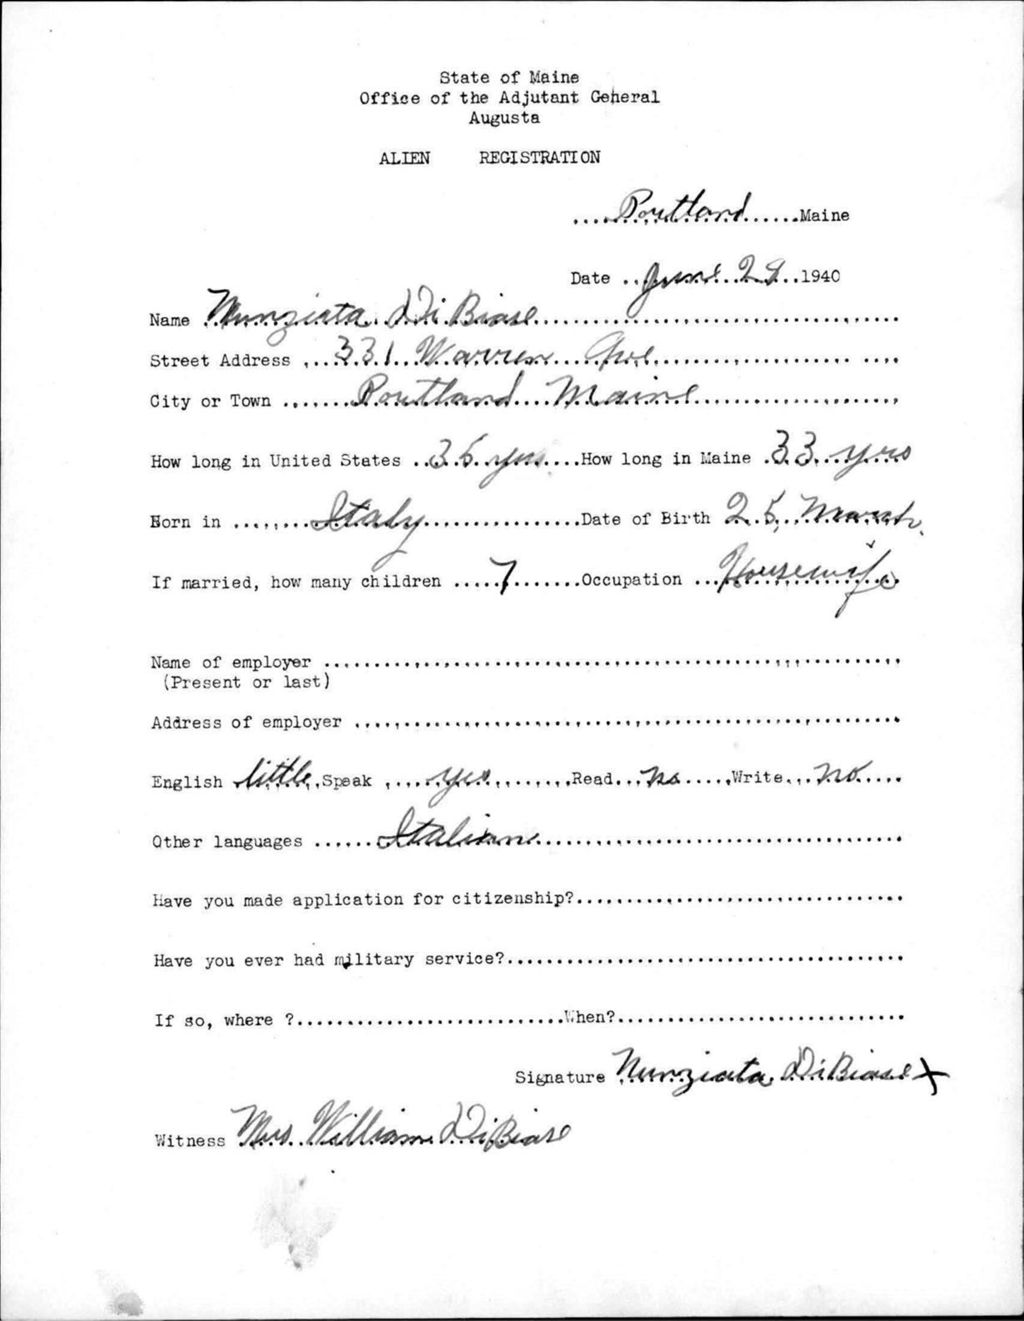 State of Maine
Office of the Adjutant General
Augusta
ALIEN REGISTRATION
....Portland......Maine
Date ..June 28..1940
Name Nunziata DiBiase
Street Address ...331 Warren Ave
City or Town .......Portland Maine
How long in United States ..35 yrs....How long in Maine .33 yrs
Born in ........Italy...............Date of Birth 25, March.
If married, how many children .....7.......Occupation ...Housewife
Name of employer ........................................................
(Present or last)
Address of employer .....................................................
English little Speak ....yes.......Read...no.....Write...no....
Other languages ......Italian...................................
Have you made application for citizenship?...............................
Have you ever had military service?......................................
If so, where ?..........................When?............................
Signature Nunziata DiBiase X
Witness Mrs. William DiBiase